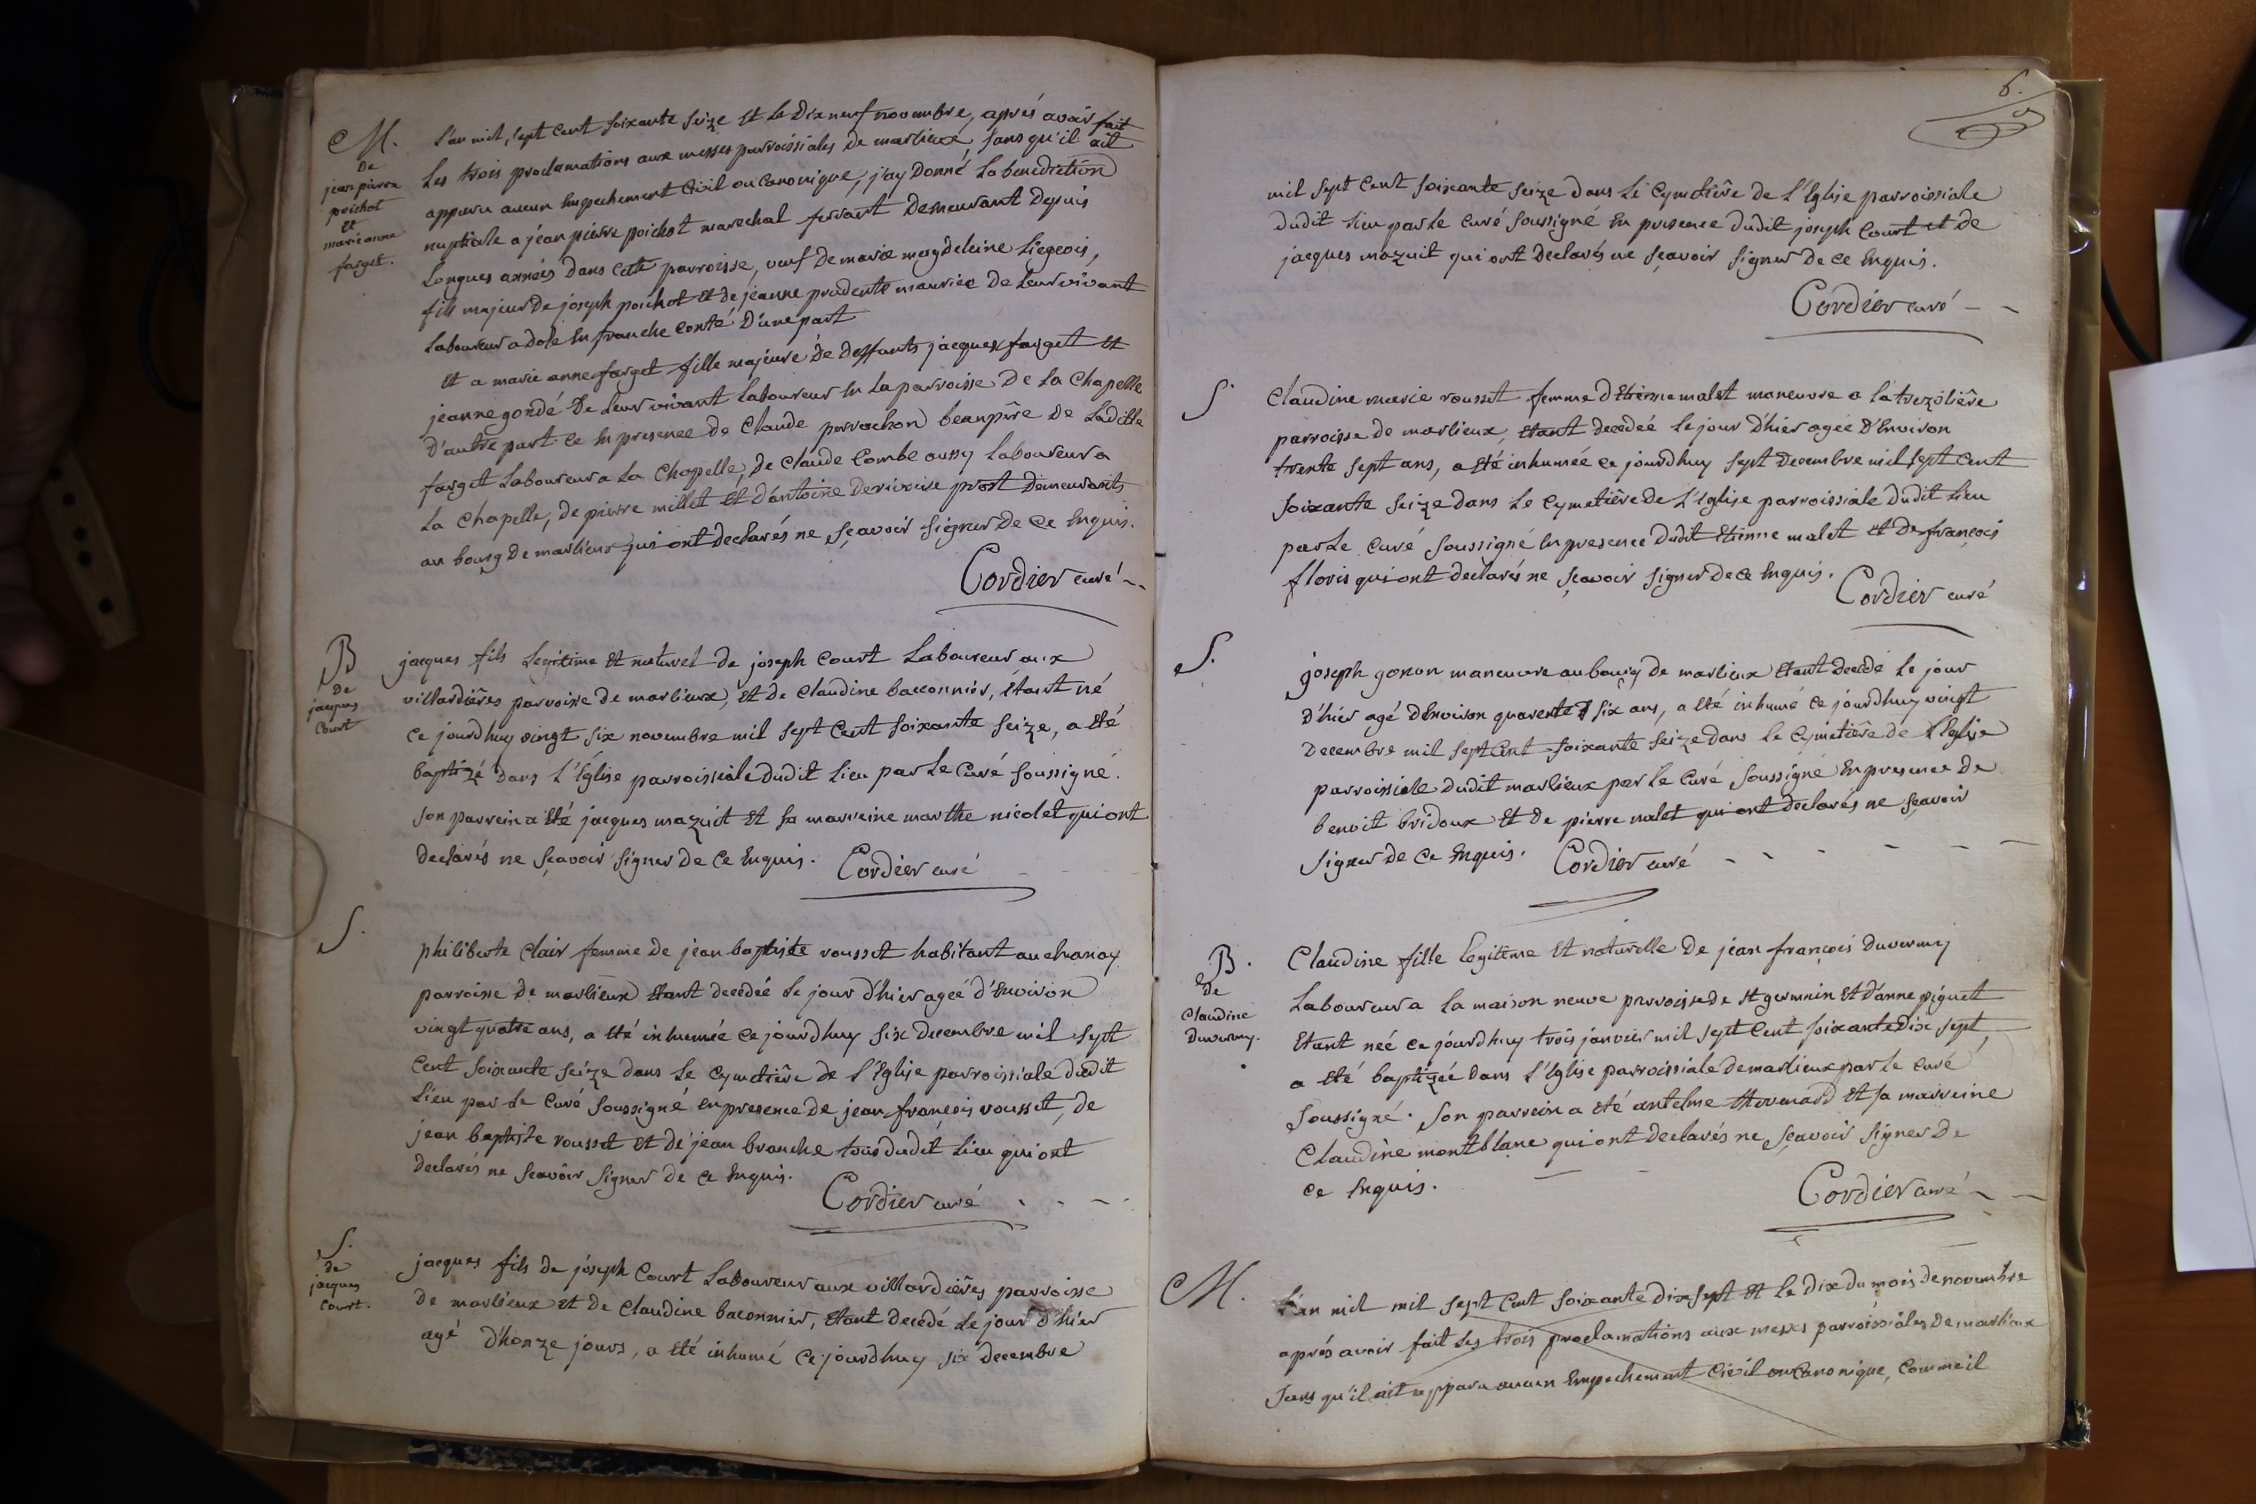 M.
De
jean pierre
poichot
et
marie anne
farget.
L'an mil, sept cent soixante seize Et le Dix neuf novembre, aprés avoir fait
Les trois proclamations aux messes parroissiales de marlieux, sans qu'il ait
apparu aucun Empechement Civil ou Canonique, j'ay Donné La benediction
nuptiale a jean pierre poichot marechal ferrant Demeurant Depuis
Longues années dans cette parroisse, veuf de marie magdeleine Liegeois,
fils majeur de joseph poichot Et de jeanne prudente mauriee De Leur vivant
Laboureur a dole En franche Conté D'une part
Et a marie anne farget fille majeure De Deffunts jacques farget Et
jeanne gondé De Leur vivant Laboureur En La parroisse De La Chapelle
D'autre part ce En presence De Claude perrachon beaupere De Laditte
farget Laboureur a La Chapelle, De Claude Combe aussy Laboureur a
La Chapelle, De pierre millet Et D'antoine prost Demeurants
au bourg De marlieux qui ont declarés ne sçavoir signer De Ce Enquis.
Cordier curé
B
de
jacques
Court
jacques fils Legitime Et naturel de joseph Court Laboureur aux
villardieres parroisse de marlieux, Et de Claudine baconnier, Étant né
ce jourdhuy vingt six novembre mil sept cent soixante seize, a Eté
baptizé dans L'Église parroissiale dudit Lieu par Le Curé soussigné.
son parrein a Eté jacques mazuit Et sa marreine marthe nicolet qui ont
declarés ne sçavoir signer de Ce Enquis. Cordier curé
S.
philiberte Clair femme de jean baptiste rousset habitant au chanay
parroisse de marlieux Etant decedeé Le jour d'hier ageé d'Environ
vingt quatre ans, a Eté inhumée ce jourdhuy six decembre mil sept
Cent soixante seize dans Le Cymetière de L'Eglise parroissiale dudit
Lieu par Le Curé soussigné En presence de jean françois rousset, de
jean baptiste rousset Et de jean branche tous dudit Lieu qui ont
declarés ne sçavoir signer de ce Enquis.
Cordier curé
S.
de
jacques
Court.
jacques fils de joseph Court Laboureur aux villardieres parroisse
de marlieux Et de Claudine baconnier, Etant decedé Le jour d'hier
agé d'honze jours, a Eté inhumé Ce jourdhuy six decembre
6.
mil sept Cent soixante seize dans Le Cymetiere de L'Eglise parroissiale
dudit Lieu par Le Curé soussigné En presence dudit joseph Court Et de
jacques mazuit qui ont Declarés ne sçavoir signer De ce Enquis.
Cordier curé
S
Claudine marie rousset femme d'Etienne malet maneuvre a
parroisse de marlieux, Etant decedeé Le jour d'hier ageé D'Environ
trente sept ans, a Eté inhumée ce jourdhuy sept Decembre mil sept cent
soixante seize dans Le Cymetiere de L'Eglise parroissiale dudit Lieu
par Le Curé soussigné En presence dudit Etienne malet Et De françois
floris qui ont declarés ne sçavoir signer de ce Enquis.
Cordier curé
S.
joseph gonon maneuvre au bourg de marlieux Etant decedé Le jour
d'hier agé d'Environ quarente six ans, a Eté inhumé Ce jourdhuy vingt
Decembre mil sept Cent soixante seize dans Le Cymetiere de L'Eglise
parroissiale dudit marlieux par Le Curé soussigné En presence de
benoit bridoux Et de pierre malet qui ont declarés ne sçavoir
signer de Ce Enquis. Cordier curé
B.
De
Claudine
Duvernay.
Claudine fille Legitime Et naturelle De jean françois Duvernay
Laboureur a La maison neuve parroisse de St germain Et d'anne piguet
Etant neé Ce jourdhuy trois janvier mil sept Cent soixante Dix sept,
a Eté baptizée dans L'Eglise parroissiale de marlieux par Le Curé
soussigné. son parrein a Eté antelme thevenard Et sa marreine
Claudine montblanc qui ont declarés ne sçavoir signer De
ce Enquis.
Cordier curé
M.
L'an mil mil sept Cent soixante dix sept Et Le dix du mois de novembre
aprés avoir fait Les trois proclamations aux messes parroissiales De marlieux
sans qu'il ait apparu aucun Empechement Civil ou Canonique, Comme il